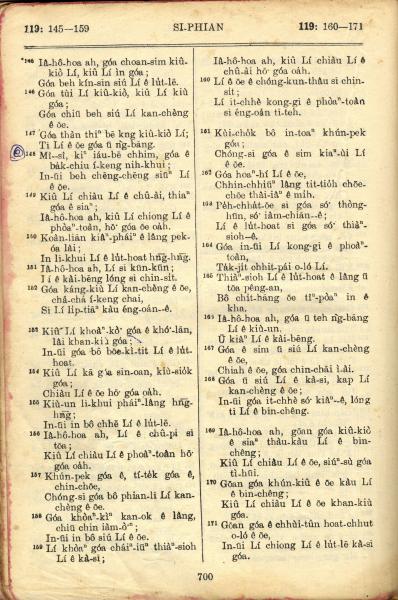 119: 145—159
SI-PHIAN
119: 160—171
145 Iâ-hô-hoa ah, góa choan-sim kiû-
kiò Lí, kiû Lí ìn góa;
Góa beh kín-sin siú Lí ê lu̍t-lē.
146 Góa tùi Lí kiû-kiò, kiû Lí kiù
góa;
Góa chiū beh siú Lí kan-chèng
ê ōe.
147 Góa thàn thiⁿ bē kng kiû-kiò Lí;
Tī Lí ê ōe góa ū ǹg-bāng.
148 Mî--sî, kiⁿ iáu-bē chhim, góa ê
ba̍k-chiu í-keng nih-khui;
In-ūi beh chēng-chēng siūⁿ Lí
ê ōe.
149 Kiû Lí chiàu Lí ê chû-ài, thiaⁿ
góa ê siaⁿ;
Iâ-hô-hoa ah, kiû Lí chiong Lí ê
phòaⁿ-toàn, hō͘ góa ōe oa̍h.
150 Koàn-liān kiâⁿ-pháiⁿ ê lâng pek-
óa lâi;
In lī-khui Lí ê lu̍t-hoat hn̄g-hn̄g.
151 Iâ-hô-hoa ah, Lí sī kūn-kūn;
Lí ê kài-bēng lóng sī chin-si̍t.
152 Góa káng-kiù Lí kan-chèng ê ōe,
chá-chá í-keng chai,
Sī Lí li̍p-tiāⁿ kàu éng-oán--ê.
153 Kiûⁿ Lí khòaⁿ-kìⁿ góa ê khó͘-lān,
lâi khan-kiù góa;
In-ūi góa bô bōe-kì-tit Lí ê lu̍t-
hoat.
154 Kiû Lí kā góa sin-oan, kiù-sio̍k
góa;
Chiàu Lí ê ōe hō͘ góa oa̍h.
155 Kiù-un lī-khui pháiⁿ-lâng hn̄g-
hn̄g;
In-ūi in bô chhē Lí ê lu̍t-lē.
156 Iâ-hô-hoa ah, Lí ê chû-pi sī
tōa;
Kiû Lí chiàu Lí ê phòaⁿ-toàn hō͘
góa oa̍h.
157 Khún-pek góa ê, tí-te̍k góa ê,
chin-chōe,
Chóng-sī góa bô phian-lī Lí kan-
chèng ê ōe.
158 Góa khòaⁿ-kìⁿ kan-ok ê lâng,
chiū chin iàm-ò͘ⁿ;
In-ūi in bô siú Lí ê ōe.
159 Lí khòaⁿ góa cháiⁿ-iūⁿ thiàⁿ-sioh
Lí ê kà-sī;
Iâ-hô-hoa ah, kiû Lí chiàu Lí ê
chû-ài hō͘ góa oa̍h.
160 Lí ê ōe ê chóng-kun-thâu sī chin-
si̍t;
Lí it-chhè kong-gī ê phòaⁿ-toàn
sī éng-oán tī-teh.
161 Kùi-cho̍k bô in-toaⁿ khún-pek
góa;
Chóng-sī góa ê sim kiaⁿ-ùi Lí
ê ōe.
162 Góa hoaⁿ-hí Lí ê ōe,
Chhin-chhiūⁿ lâng tit-tio̍h chōe-
chōe thâi-iâⁿ ê mi̍h.
163 Pe̍h-chha̍t-ōe sī góa só͘ thòng-
hūn, só͘ iàm-chiān--ê;
Lí ê lu̍t-hoat sī góa só͘ thiàⁿ-
sioh--ê.
164 Góa in-ūi Lí kong-gī ê phòaⁿ-
toàn,
Ta̍k-ji̍t chhit-pái o-ló Lí.
165 Thiàⁿ-sioh Lí ê lu̍t-hoat ê lâng ū
tōa pêng-an,
Bô chi̍t-hāng ōe tīⁿ-pòaⁿ in ê
kha.
166 Iâ-hô-hoa ah, góa ū teh ǹg-bāng
Lí ê kiù-un.
Ū kiâⁿ Lí ê kài-bēng.
167 Góa ê sim ū siú Lí kan-chèng
ê ōe,
Chiah ê ōe, góa chin-chāi ài.
168 Góa ū siú Lí ê kà-sī, kap Lí
kan-chèng ê ōe;
In-ūi góa it-chhè só͘ kiâⁿ--ê, lóng
tī Lí bīn-chêng.
169 Iâ-hô-hoa ah, goān góa kiû-kiò
ê siaⁿ thàu-kàu Lí ê bīn-
chêng;
Kiû Lí chiàu Lí ê ōe, siúⁿ-sù góa
tì-hūi.
170 Goān góa khún-kiû ê ōe kàu Lí
ê bīn-chêng;
Kiû Lí chiàu Lí ê ōe khan-kiù
góa.
171 Goān góa ê chhùi-tûn hoat-chhut
o-ló ê ōe,
In-ūi Lí chiong Lí ê lu̍t-lē kà-sī
góa.
700